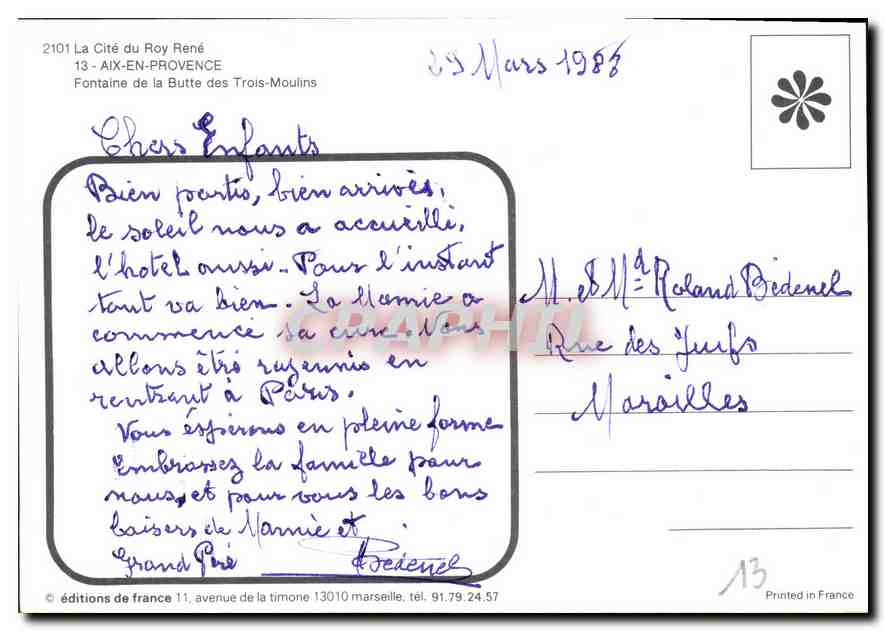 2101 La Cité du Roy René
13 - AIX-EN-PROVENCE
Fontaine de la Butte des Trois-Moulins
29 Mars 1988
Chers Enfants
Bien partis, bien arrivés,
le soleil nous a accueilli,
l'hotel aussi.. Pour l'instant
tout va bien. La Mamie a
commencé sa cure. Nous
allons être rajeunis en
rentrant à Paris.
Vous éspérons en pleine forme
Embrassez la famille pour
nous, et pour vous les bons
baisers de Mamie et
Grand Péré Bédenel
M. et Mme Roland Bédenel
Rue des Juifs
Maroilles
CPAPHIL
13
© éditions de france 11, avenue de la timone 13010 marseille, tél. 91.79.24.57
Printed in France